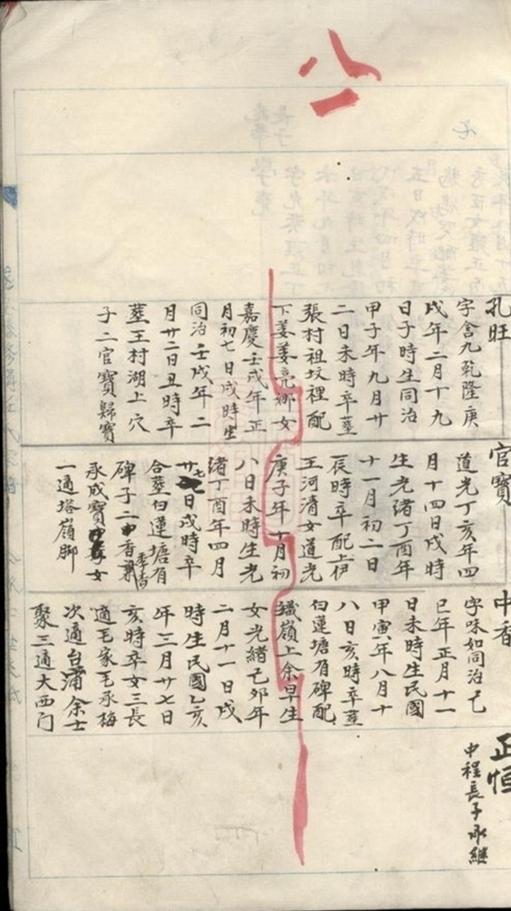 孔旺
字含九乾隆庚
戌年二月十九
日子時生同治
甲子年九月廿
二日未時卒塟
張村祖坟裡配
下姜姜亮娜女
嘉慶壬戌年正
月初七日戌時生
同治壬戌年二
月廿二日丑時卒
塟王村湖上穴
子二官寶歸寶
官寶
道光丁亥年四
月十四日戌時
生光緒丁酉年
十一月初二日
辰時卒配上伊
王河清女道光
庚子年十月初
八日未時生光
緒丁酉年四月
廿七日戌時卒
合塟白蓮塘有
碑子二中香
承成寶女
一適塔嶺脚
中香
字味如同治己
巳年正月十一
日未時生民國
甲寅年八月十
八日亥時卒塟
白蓮塘有碑配
嶺上余早生
女光緒己卯年
二月十一日戌
時生民國乙亥
年三月廿七日
亥時卒女三長
適毛家毛承梅
次適台浦余士
聚三適大西门
正恒
中程長子承繼